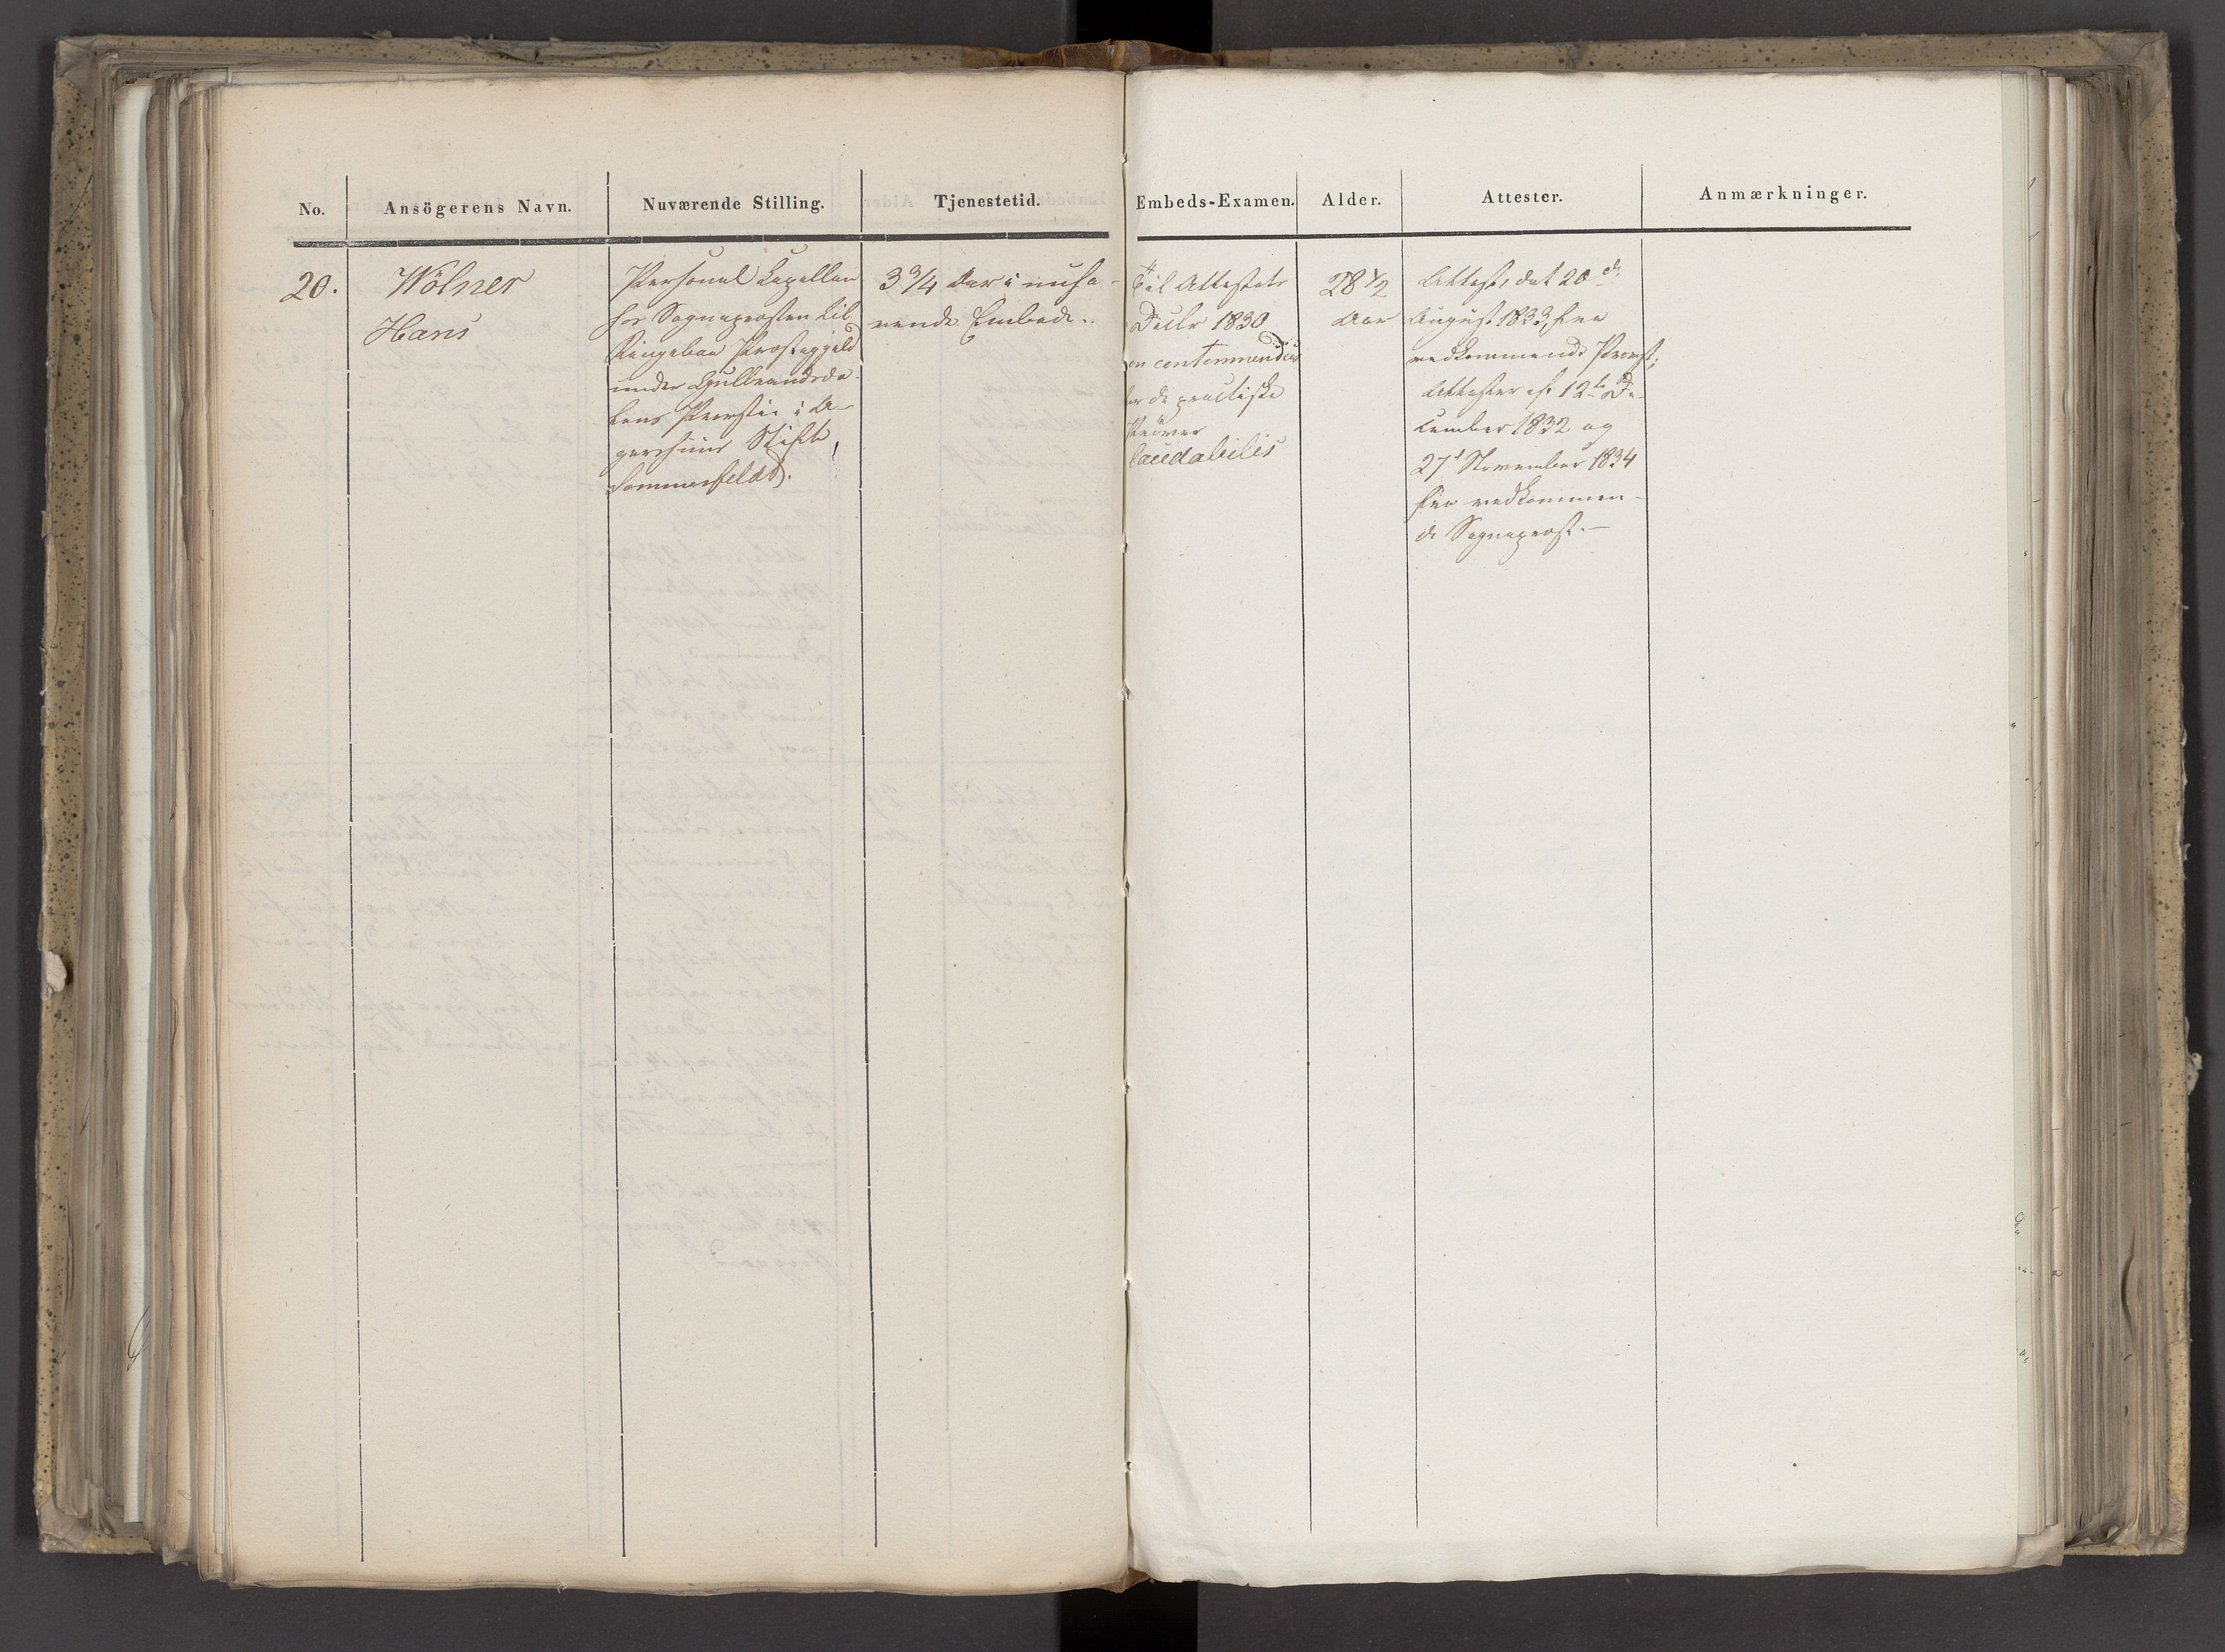 No.
Ansögerens Navn.
Nuværende Stilling.
Tjenestetid.
Embeds-Examen.
Alder.
Attester.
Anmærkninger.
20.
Wölner
Hans
Personel Capellan
hos Sognepresten til
Ringeboe Præstegjeld
under Gulbrandsda-
lens Provstie i A-
gershuus Stift,
Sommerfeldt.
3 3/4 Aar i nuha-
vende Embede.
Til Attestats
Decbr 1830
non contemnendus
for de practiske
Prøver
laudabilis
28 1/2
Aar
Attest, dat 20de
August 1833, fra
vedkommende Provst;
Attester af 12te De-
cember 1832 og
27d November 1834
fra vedkommen-
de Sogneprest.-